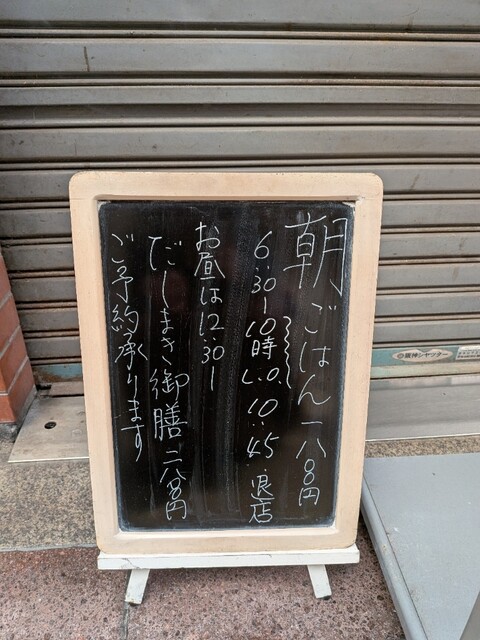 朝ごはん 一八〇〇円
6:30ー10時L.O. 10:45退店
お昼は12:30ー
だしまき御膳 二八〇〇円
ご予約承ります
阪神シヤッター